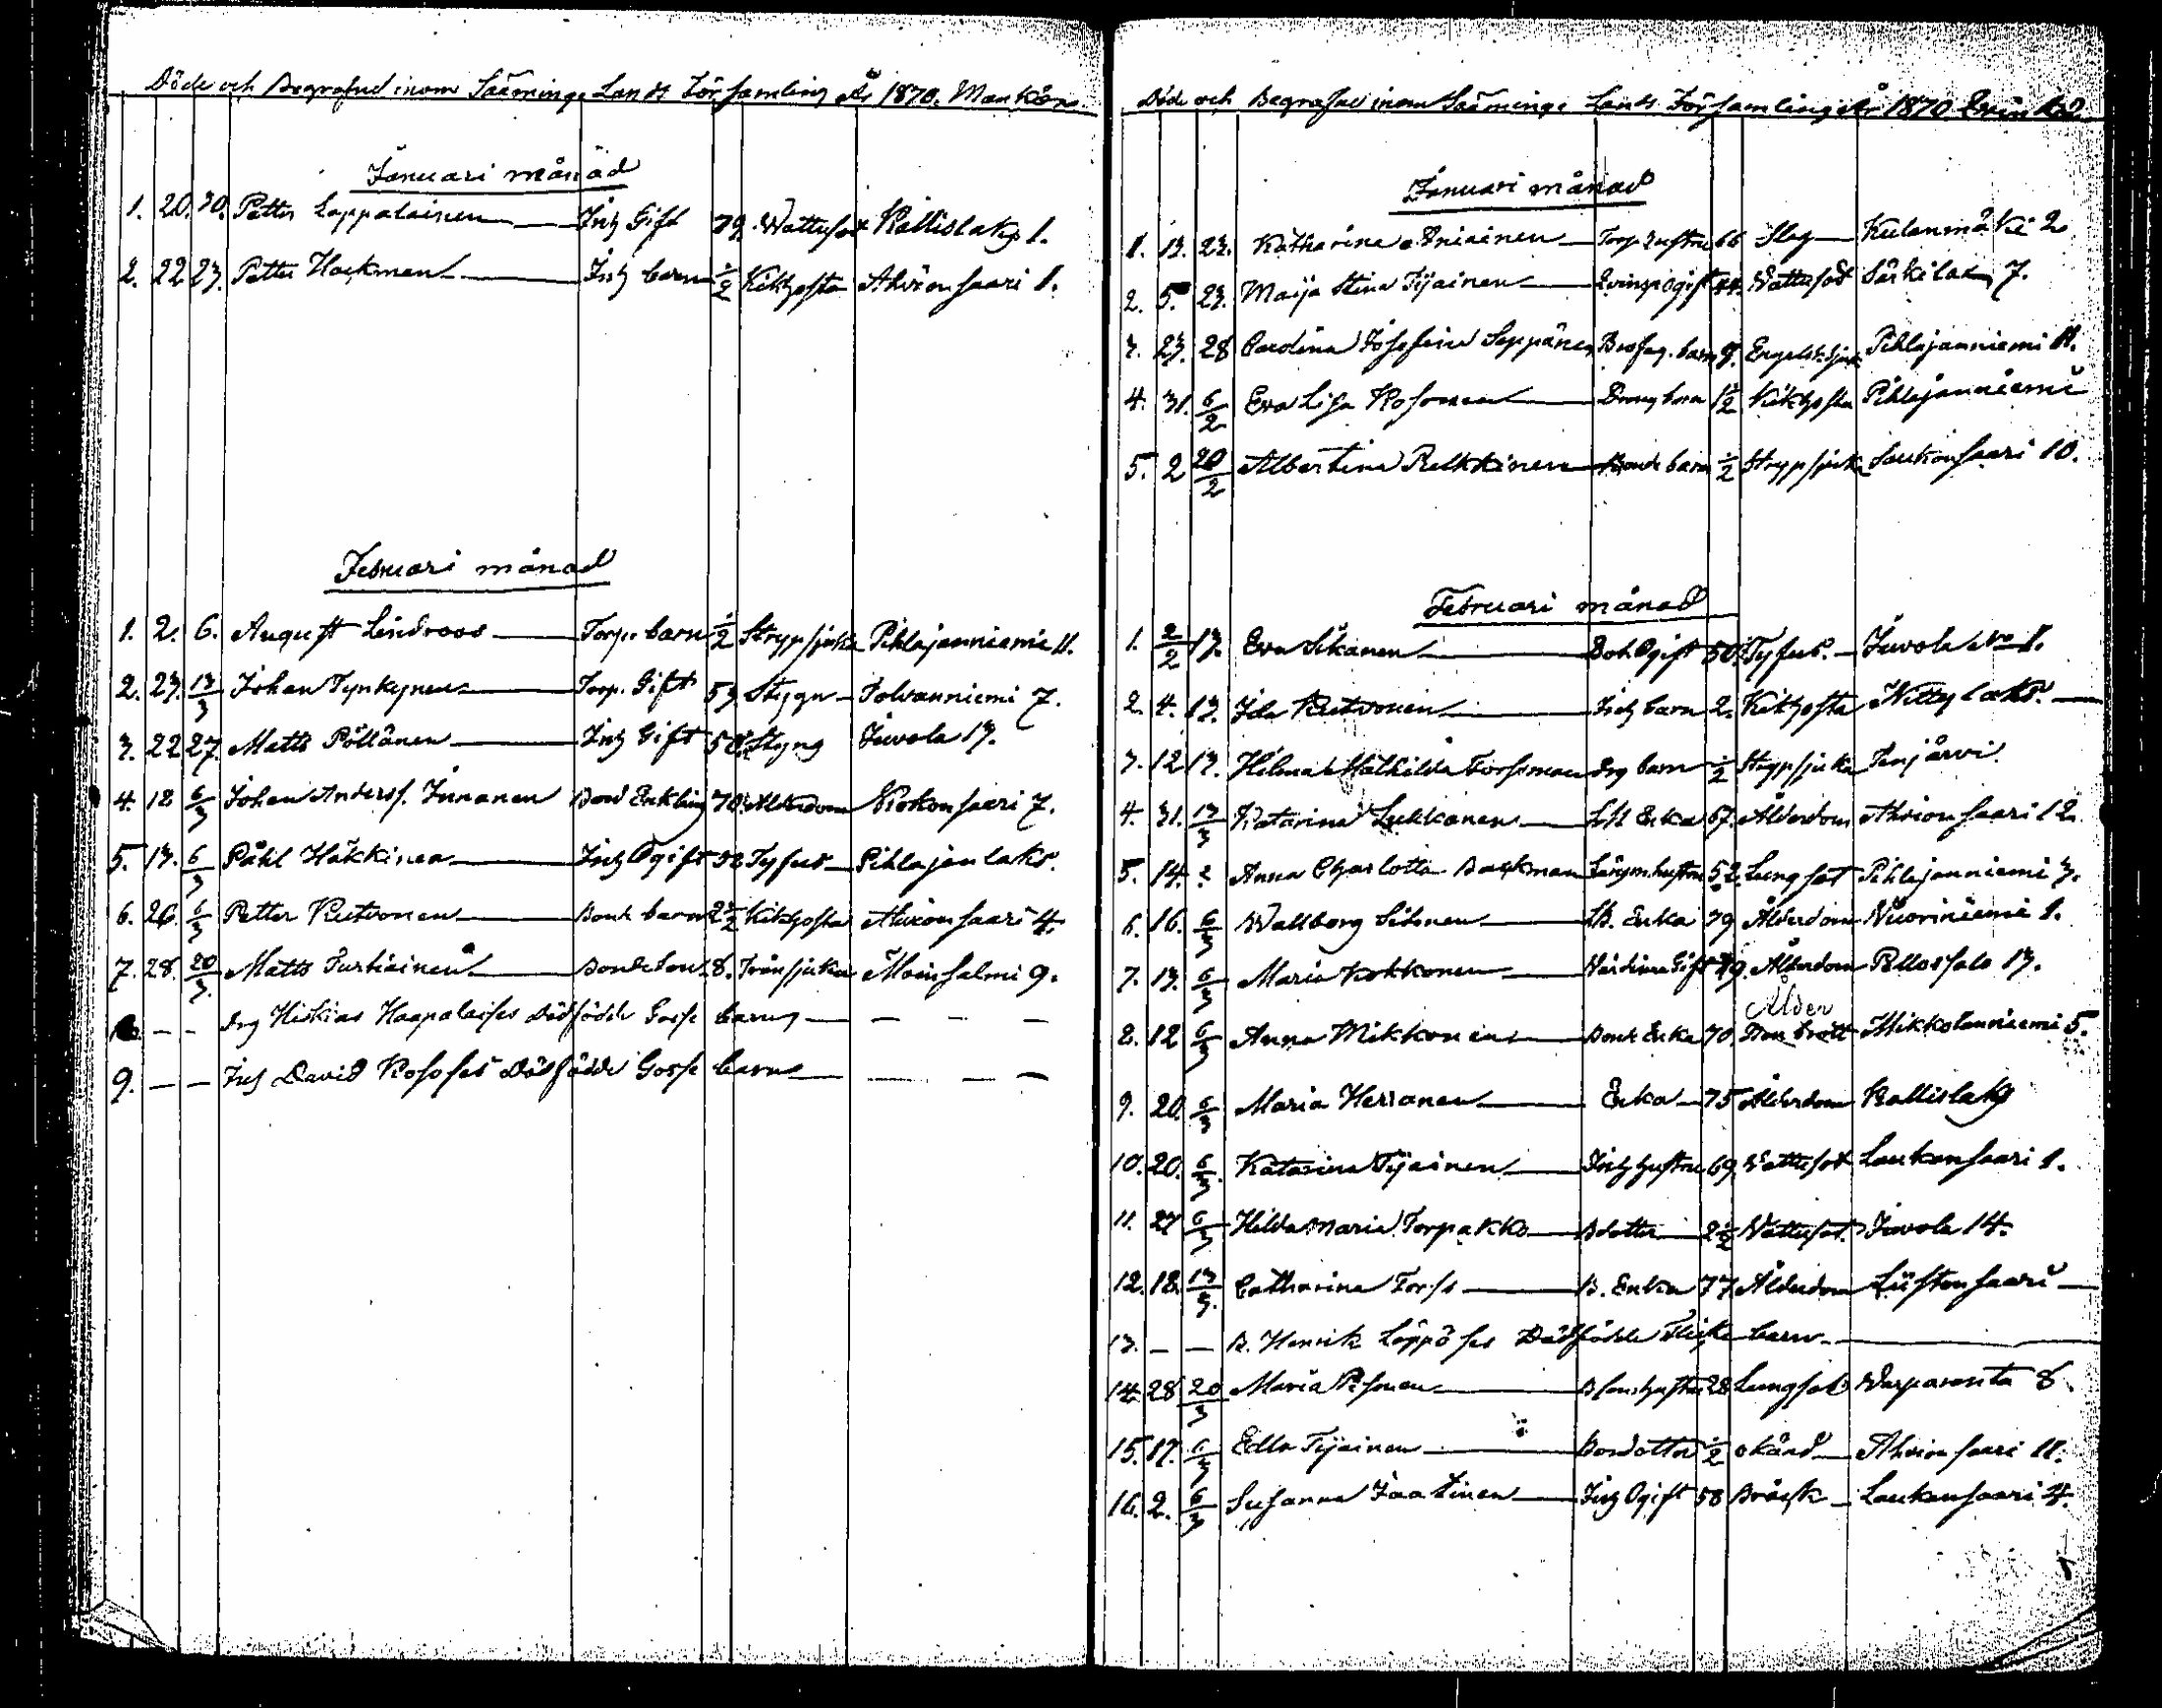 Döde och Begrafne inom Sääminge Lands Församling År 1870. Mankön
Januari månad
1. 20. 30. Petter Lappalainen Inh Gift 79. Wattusot Kallislaks 1.
2. 22 23. Petter Hackman Inh barn 1/2 Kikhosta Ahvionsaari 1.
Februari månad
1. 2. 6. August Lindroos Torp. barn 1/2 Strypsjuka Pihlajanniemi 11.
2. 23. 13/3 Johan Tynkynen Torp. Gift 53 Stygn Tolvanniemi 7.
3. 22 27. Matts Pöllänen Inh Gift 58. Styng Juvola 13.
4. 18 6/3 Johan Anderss. Innanen Bond Enkling 70. Ålderdom Kokonsaari 7.
5. 13. 6/3 Påhl Häkkinen Inh Ogift 32 Tyfus Pihlajanlaks.
6. 26. 6/3 Petter Rutvonen Bond barn 2 1/2 Kikhosta Ahvionsaari 4.
7. 28. 20/3 Matts Turtiainen Bonde Son 8. Tvinsjuka Moinsalmi 9.
— — Drg Hiskias Haapalaises Dödfödde Gosse barn — — — —
9. — — Inh David Kososes Dödfödde Gosse barn — — — —
Döde och Begrafne inom Sääminge Lands Församling År 1870 Qvinkön
Januari månad
1. 13. 23. Katharina Aniainen Torp hustru 66 Slag Kulenmäki 2
2. 5. 23. Maija Stina Tijainen Qvinsp Ogift 44. Wattusot Särkilaks 7.
3. 23. 28 Carolina Josefina Seppänen barn 9. Engelsk. Sjuk Pihlajanniemi 11.
4. 31. 6/2 Eva Lisa Kosonen Dreng barn 1 1/2 Kikhosta Pihlajanniemi
5. 2 20/2 Albertina Pulkkinen Bonde barn 1/2 Strypsjuka Laukansaari 10.
Februari månad
1. 2/2 13. Eva Sikanen Ogift 50. Tyfus. Juvola No 1.
2. 4. 13. Ida Rutvonen Inh barn 2. Kikhosta Kittylaks.
3. 12 13. Hilma Mathilda Forssman Drg barn 1/2 Strypsjuka
4. 31. 13/3 Katarina Lukkanen Enka 67. Ålderdom Ahvionsaari 12.
5. 14. ? Anna Charlotta Backman hustru 52. Lungsot Pihlajanniemi 3.
6. 16. 6/3 Wallborg Silvonen Enka 79 Ålderdom Nuoriniemi 1.
7. 13. 6/3 Maria Kokkonen Gift 79. Ålderdom Pellossalo 13.
8. 12 6/3 Anna Mikkonen Bond Enka 70. Ålder Mikkolanniemi 5.
9. 20. 6/3 Maria Herranen Enka 75 Ålderdom Kallislaks
10. 20. 6/3 Katarina Tijainen Inh hustru 69. Wattusot Laukansaari 1.
11. 27 6/3 Hilda Maria Torpakko B dotter 2 1/2 Wattusot. Juvola 14.
12. 18. 13/3 Catharina Forss B. Enka 77 Ålderdom Liistonsaari
13. — — B. Henrik Löppöses Dödfödde Flicke barn
14. 28 20/3 Maria Pesonen B sons hustru 28 Lungsot Warparanta 8
15. 17. 6/3 Edla Tijainen Bondotter 1/2 okänd Ahvionsaari 11.
16. 2. 6/3 Susanna Jaatinen Inh Ogift 58 Bråck Laukansaari 4.